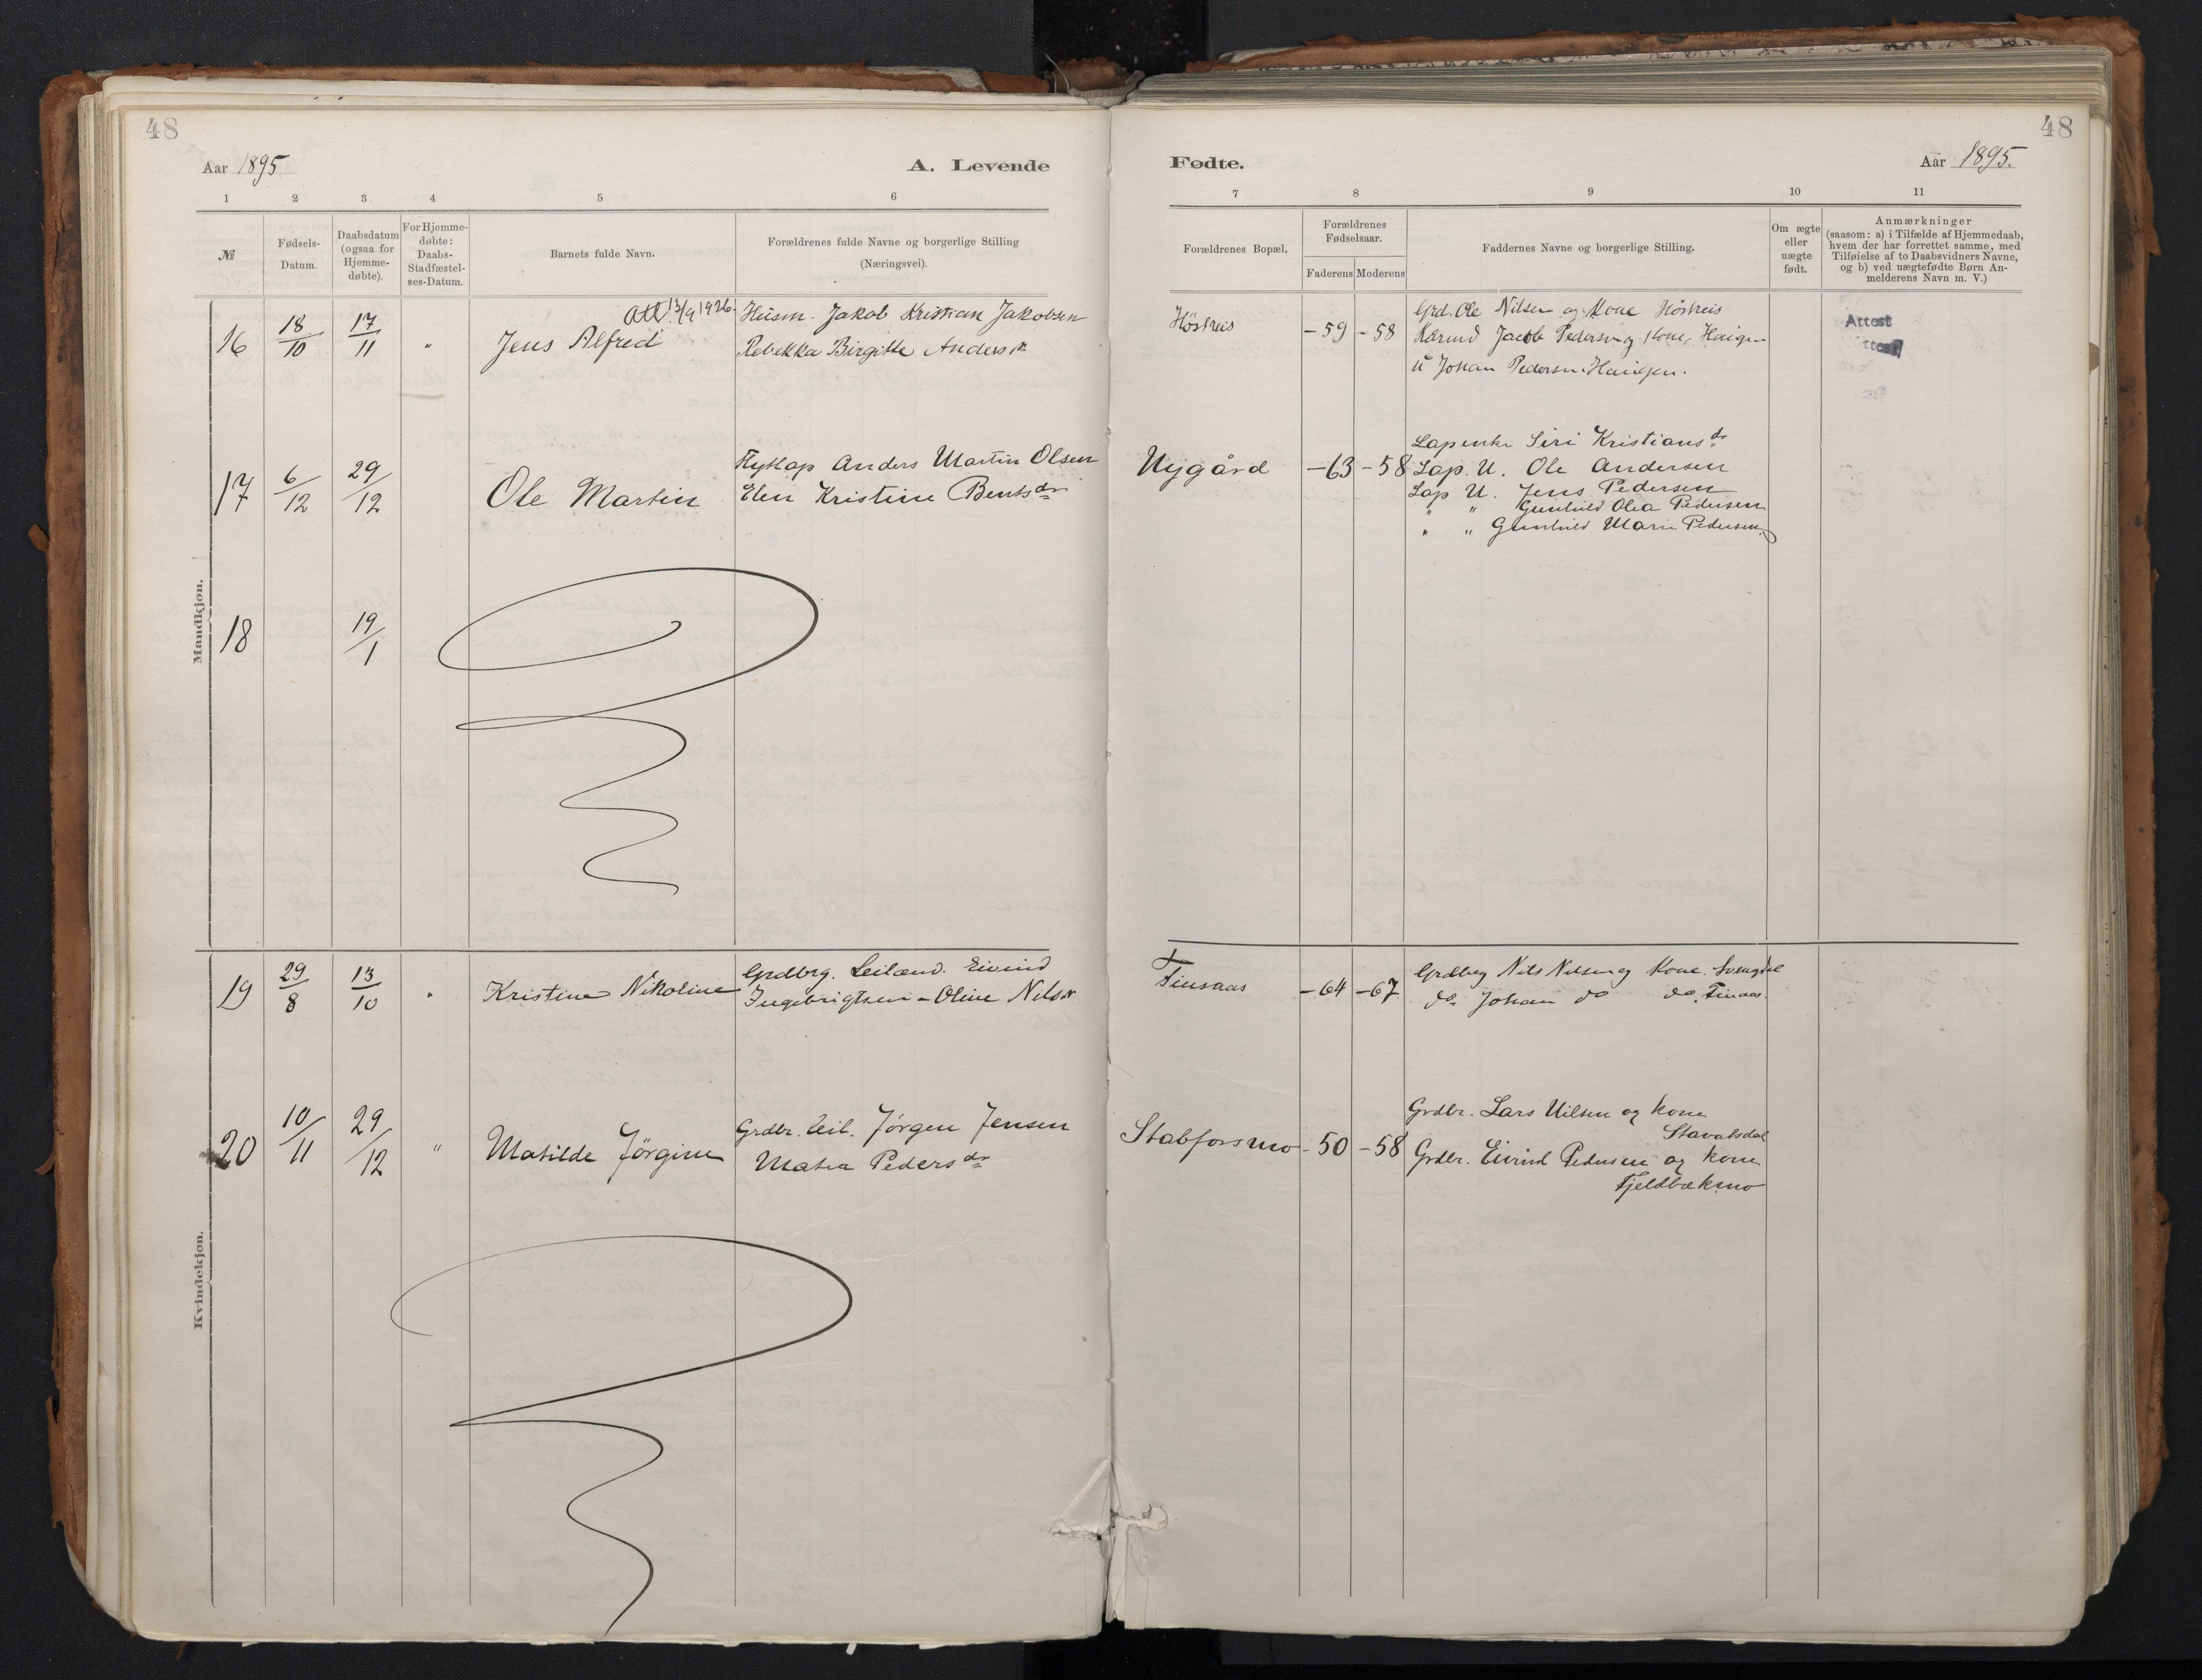 48
Aar 1895
A. Levende
1 2 3 4 5 6
№
Fødsels-
Datum.
Daabsdatum
(ogsaa for
Hjemme-
døbte).
For Hjemme-
døbte:
Daabs-
Stadfæstel-
ses-Datum.
Barnets fulde Navn.
Forældrenes fulde Navne og borgerlige Stilling
(Næringsvei).
Mandkjøn.
16 18/10 17/11 "
Att. 13/9 1926.
Jens Alfred
Husm. Jakob Kristian Jakobsen
Rebekka Birgitte Anders dr
17 6/12 29/12
Ole Martin
Flytlap Anders Martin Olsen
Elen Kristine Bents dr
18 19/1
19 29/8 13/10 "
Kristine Nikoline
Grdbrg. Leilænd. Eivind
Ingebrigtsen - Oline Nils dr
20 10/11 29/12 "
Matilde Jørgine
Grdbr. leil. Jørgen Jensen
Matea Peders dr
Kvindekjøn.
48
Fødte.
Aar 1895.
7 8 9 10 11
Forældrenes Bopæl.
Forældrenes
Fødselsaar.
Faderens Moderens
Faddernes Navne og borgerlige Stilling.
Om ægte
eller
uægte
født.
Anmærkninger
(saasom: a) i Tilfælde af Hjemmedaab,
hvem der har forrettet samme, med
Tilføielse af to Daabsvidners Navne,
og b) ved uægtefødte Børn An-
melderens Navn m. V.)
Høstreis -59 -58
Grd. Ole Nilsen og Kone Høstreis
Jacob Pedersen og Kone, Haugen
U Johan Pedersen Haugen.
Attest
ttest
Nygård -63 -58
Lapenke Siri Kristians dr
Lap. U. Ole Andersen
Lap U. Jens Pedersen
" " Gunhild Olea Pedersen
" " Gunhild Marie Pedersen.
Finsaas -64 -67
Grdbrg Nils Nilsen og Kone.
do Johan do do. Finsaas.
Stabforsmo -50 -58
Grdbr. Lars Nilsen og kone
Stavatsdal
Grdbr. Eivind Pedersen og kone
Fjeldbækmo